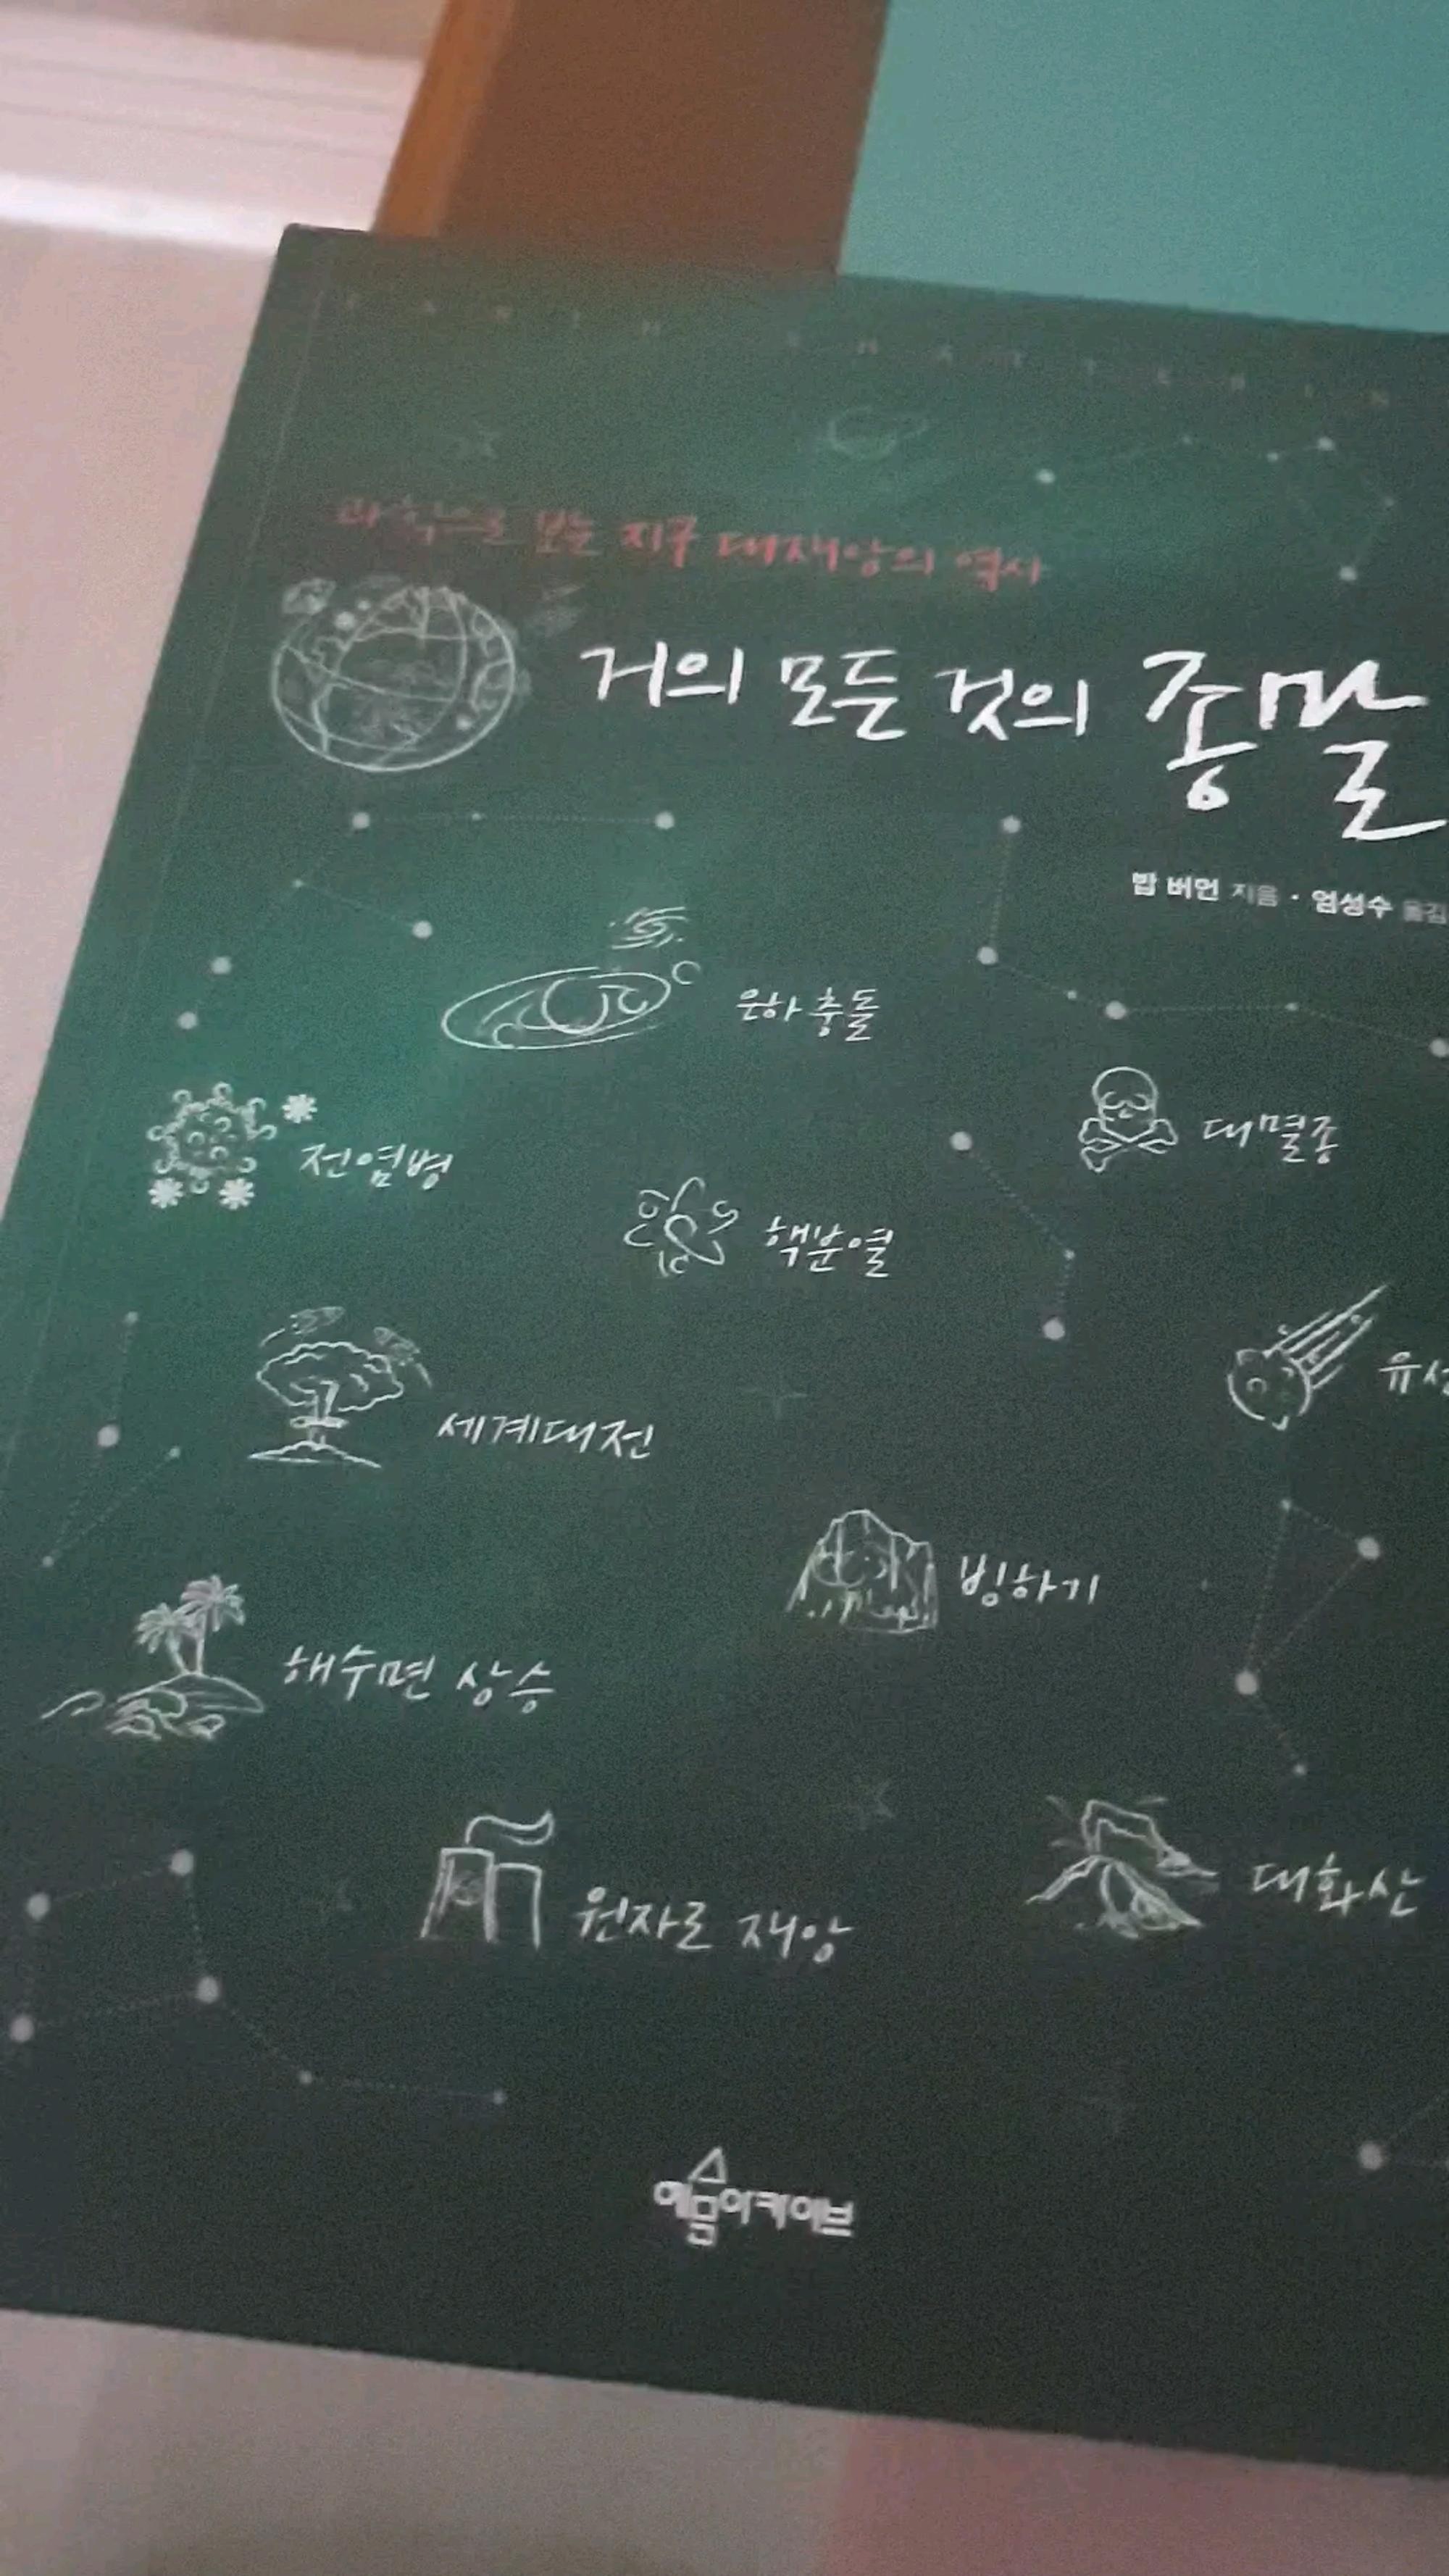 EARTH SHATTERIN
과학으로 보는 지구 대재앙의 역사
거의 모든 것의 종말
밥 버먼 지음 · 엄성수 옮김
은하 충돌
대멸종
전염병
핵분열
유성
세계대전
빙하기
해수면 상승
대화산
원자로 재앙
예문아카이브